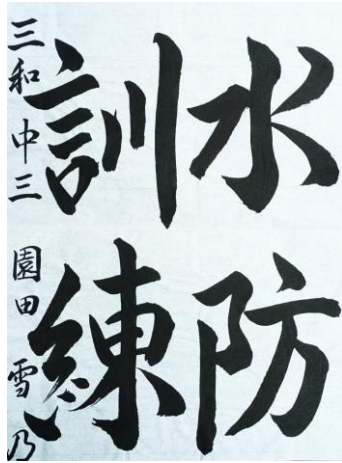 水防
訓練
三和中三 園田雪乃